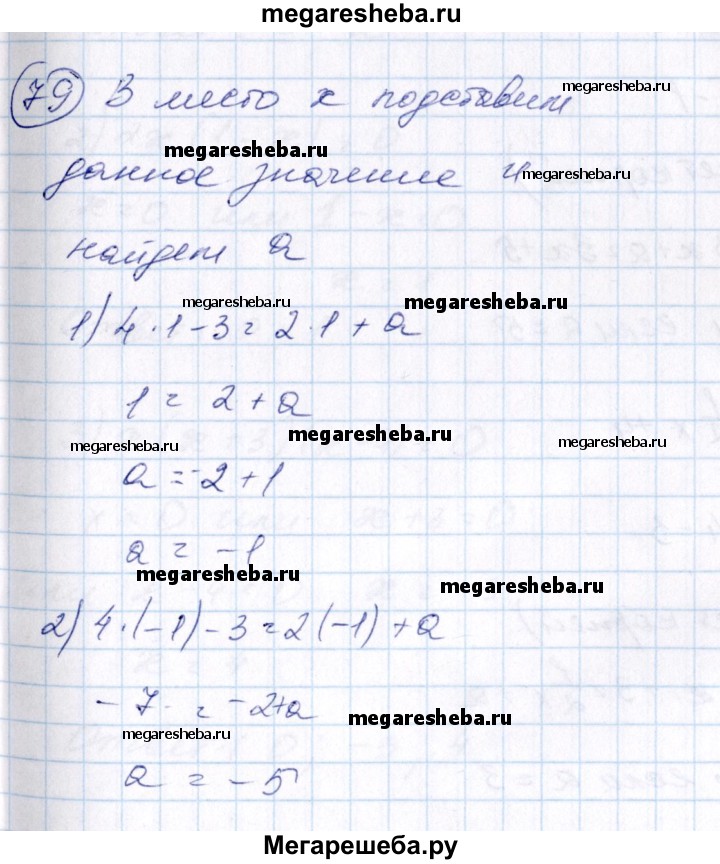 megaresheba.ru
79 В место x подставим
megaresheba.ru
megaresheba.ru
данное значение и
megaresheba.ru
найдем a
megaresheba.ru
megaresheba.ru
1) 4·1-3=2·1+a
1=2+a
megaresheba.ru
megaresheba.ru
megaresheba.ru
a=-2+1
a=-1
megaresheba.ru
megaresheba.ru
2) 4·(-1)-3=2(-1)+a
-7=-2+a
megaresheba.ru
megaresheba.ru
a=-5
Мегарешеба.ру